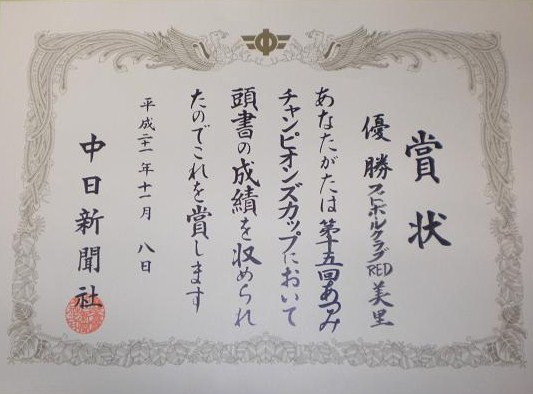 賞状
優勝 フットボールクラブRED美里
あなたがたは第十五回あつみ
チャンピオンズカップにおいて
頭書の成績を収められ
たのでこれを賞します
平成二十一年十一月八日
中日新聞社